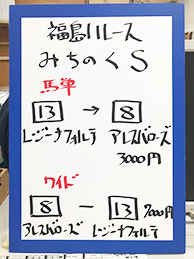 福島11レース
みちのくS
馬単
13 → 8
レジーナフォルテ アレスバローズ
3000円
ワイド
8 ー 13 7000円
アレスバローズ レジーナフォルテ